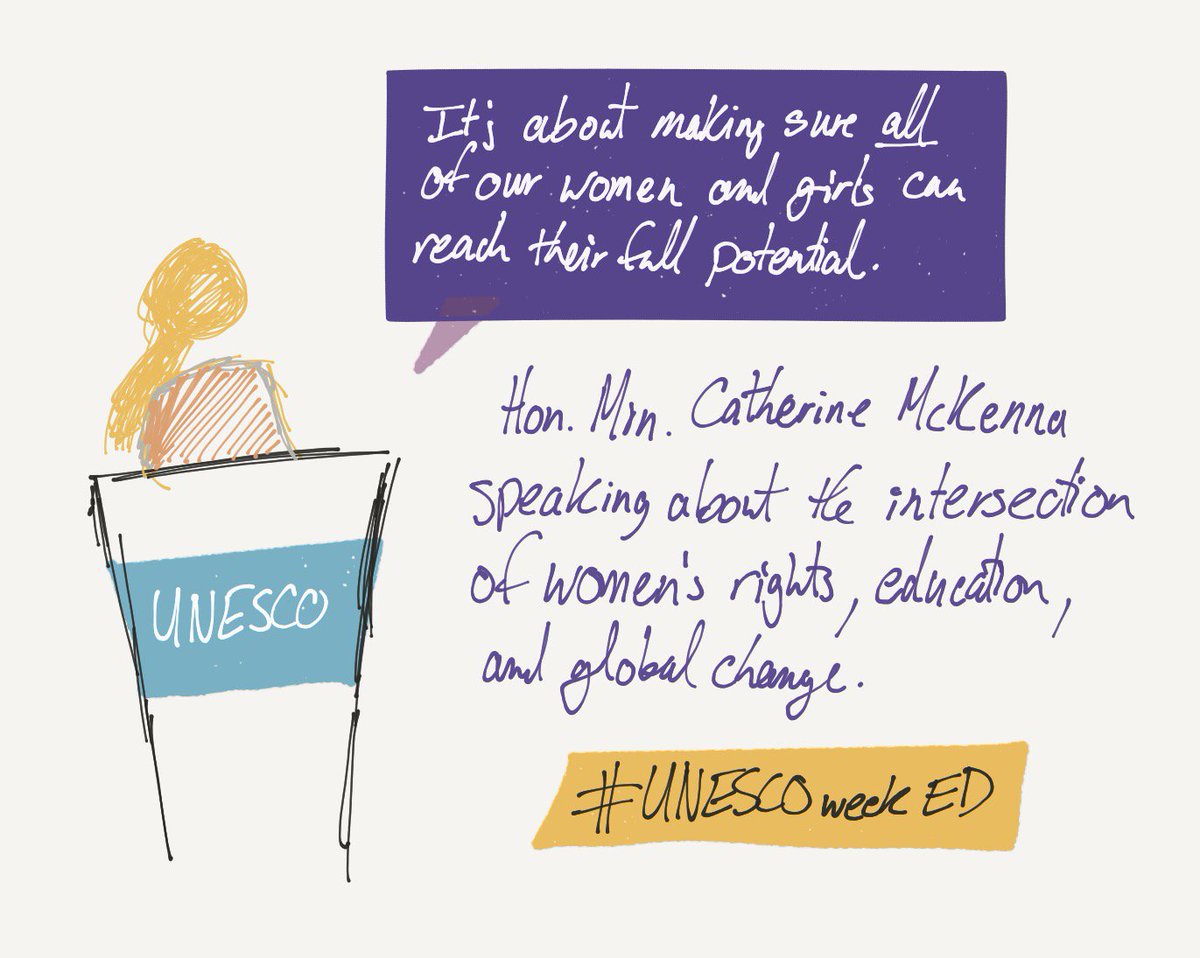 It's about making sure all
of our women and girls can
reach their full potential.
Hon. Min. Catherine McKenna
speaking about the intersection
of women's rights, education,
and global change.
UNESCO
#UNESCO week ED